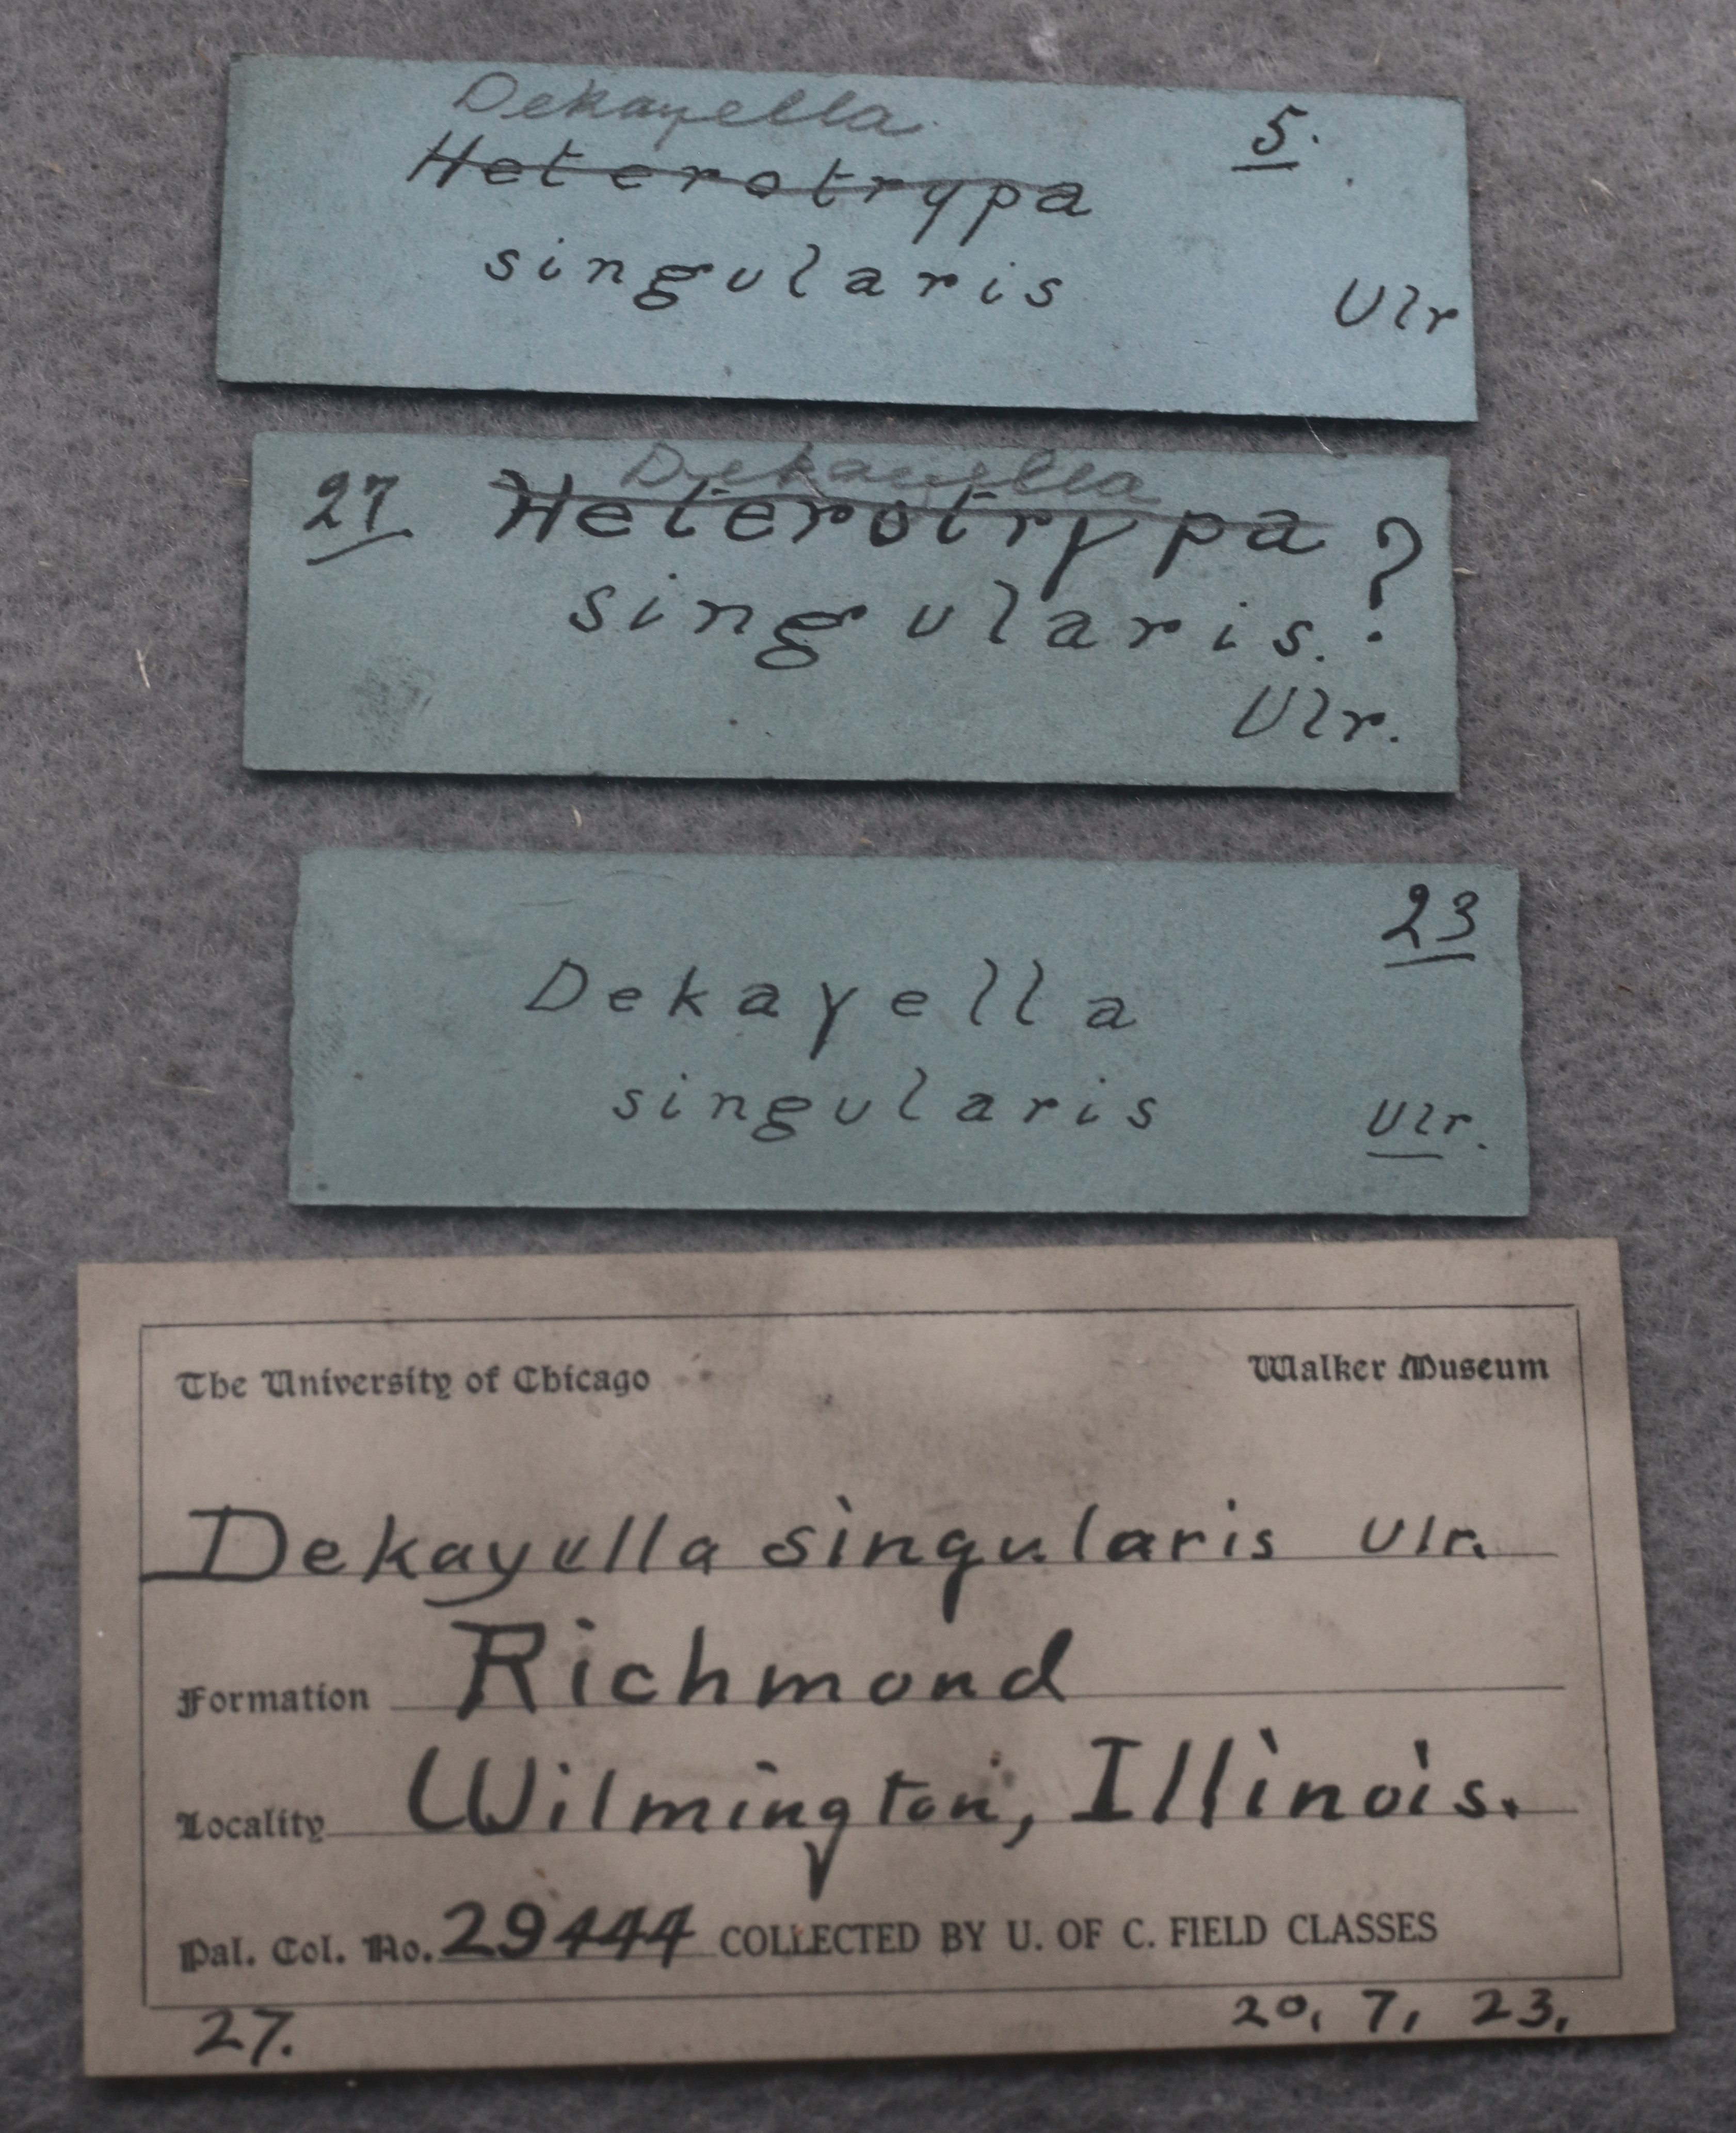 Dekayella
Heterotrypa 5.
singularis
Ulr
Dekayella
27. Heterotrypa ?
singularis.
Ulr.
23
Dekayella
singularis
Ulr.
The University of Chicago Walker Museum
Dekayella singularis Ulr.
Formation Richmond
Locality Wilmington, Illinois.
Pal. Col. No. 29444 COLLECTED BY U. OF C. FIELD CLASSES
27. 20, 7, 23,